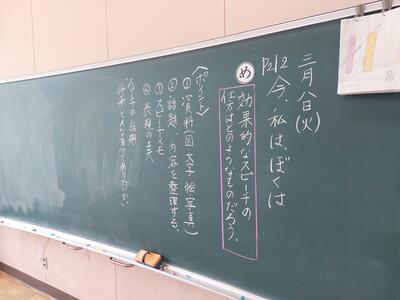 三月八日(火)
P212 今、私は、ぼくは
め 効果的なスピーチの
仕方はどのようなものだろう。
〈ポイント〉
①資料(図・文字・絵・写真)
②話題・内容を整理する。
③スピーチメモ
④表現の工夫
将来、どんな自分でありたいか。